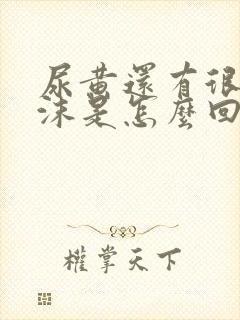 尿黃還有很
沫是怎麼回
權掌天下